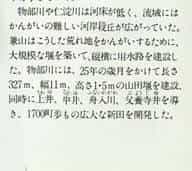 物部川や仁淀川は河床が低く、流域には
かんがいの難しい河岸段丘が広がっていた。
兼山はこうした荒れ地をかんがいするために、
大規模な堰を築いて、縦横に用水路を建設し
た。物部川には、25年の歳月をかけて長さ
327m、幅11m、高さ1・5mの山田堰を建設し、
同時に上井、中井、舟入川、父養寺井を導
き、1700町歩もの広大な新田を開発した。